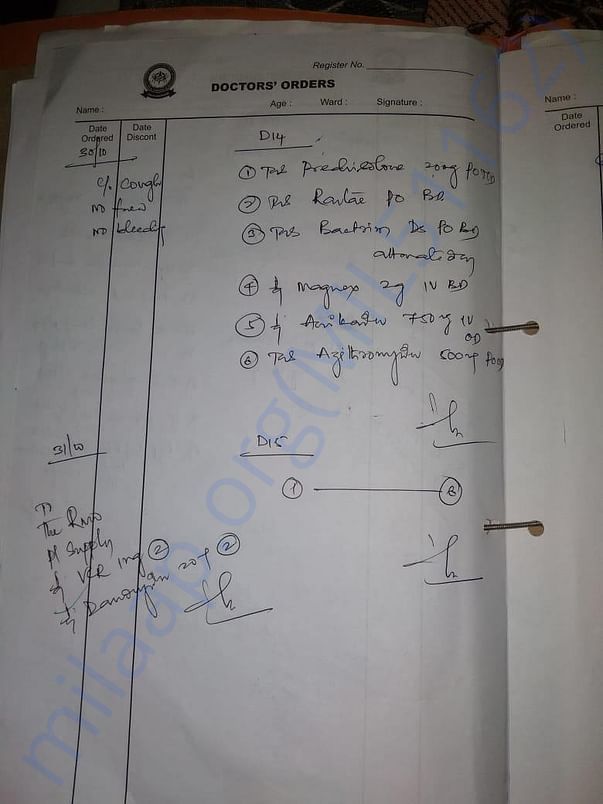 Register No.
DOCTORS' ORDERS
Name : Age : Ward : Signature :
Date Ordered
Date Discont
30/10
D14
c/o cough
no fever
no bleeding
① Tab Prednisolone 20mg PO TID
② Tab Rantac PO BD
③ Tab Bactrim DS PO BD
alternate day
④ Inj Magnex 2g IV BD
⑤ Inj Amikacin 750mg IV
OD
⑥ Tab Azithromycin 500mg PO OD
31/10
D15
① ⑥
To
The RMO
Pl Supply
Inj VCR 1mg ②
Inj Daunomycin 20mg ②
Name :
Date Ordered
milaap.org(MIL511162)